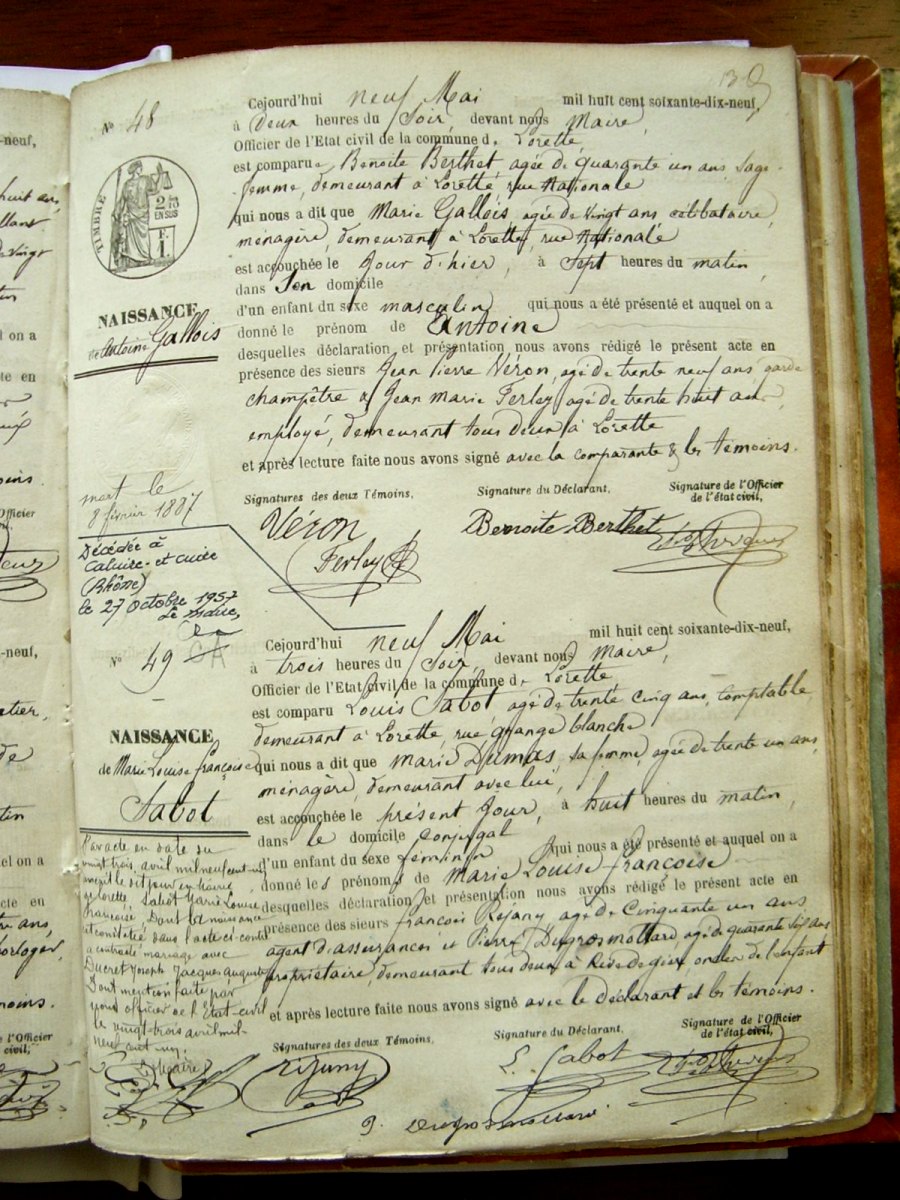 Nº 48
Cejourd'hui neuf Mai mil huit cent soixante-dix-neuf,
à deux heures du Soir, devant nous Maire,
Officier de l'Etat civil de la commune d. Lorette
est comparue Benoite Berthet, agée de quarante un ans, Sage-
femme, demeurant à Lorette, rue Nationale
qui nous a dit que Marie Gallois agée de vingt ans célibataire,
ménagère, demeurant à Lorette, rue Nationale
est accouchée le Jour d'hier, à Sept heures du matin,
dans Son domicile
d'un enfant du sexe masculin qui nous a été présenté et auquel on a
donné le prénom de Antoine
desquelles déclaration et présentation nous avons rédigé le présent acte en
présence des sieurs Jean Pierre Véron, agé de trente neuf ans, garde
champêtre & Jean Marie Ferley agé de trente huit ans,
employé, demeurant tous deux à Lorette
et après lecture faite nous avons signé avec la comparante & les témoins.
TIMBRE
2/10
EN SUS
F.
1.
NAISSANCE
de Antoine Gallois
mort le
8 février 1887
Signatures des deux Témoins,
Signature du Déclarant,
Signature de l'Officier
de l'état civil,
Véron
Ferley
Benoite Berthet
Décédée à
Caluire-et-cuire
(Rhône)
le 27 octobre 1957
Le Maire,
Nº 49
Cejourd'hui neuf Mai mil huit cent soixante-dix-neuf,
à trois heures du Soir, devant nous Maire,
Officier de l'Etat civil de la commune d. Lorette
est comparu Louis Sabot agé de trente cinq ans, comptable
demeurant à Lorette, rue grange blanche
qui nous a dit que marie Dumas, sa femme, agée de trente un ans,
ménagère, demeurant avec lui,
est accouchée le présent Jour, à huit heures du matin,
dans le domicile conjugal
d'un enfant du sexe féminin qui nous a été présenté et auquel on a
donné les prénoms de Marie Louise françoise
desquelles déclaration et présentation nous avons rédigé le présent acte en
présence des sieurs françois Rejany, agé de Cinquante un ans
agent d'assurances et Pierre Dugrosmottard, agé de quarante ans
propriétaire, demeurant tous deux à Rive de gier, oncles de l'enfant
et après lecture faite nous avons signé avec le Déclarant et les témoins.
NAISSANCE
de Marie Louise françoise
Sabot
Par acte en date du
vingt trois avril mil neuf cent un
Lorette, Sabot Marie Louise
Françoise, Dont la naissance
est constatée dans l'acte ci-contre
a contracté mariage avec
Ducret Joseph Jacques Auguste
Dont mention faite par
nous officier de l'Etat-civil
le vingt-trois avril mil
neuf cent un.
Signatures des deux Témoins,
Signature du Déclarant,
Signature de l'Officier
de l'état civil,
L. Sabot